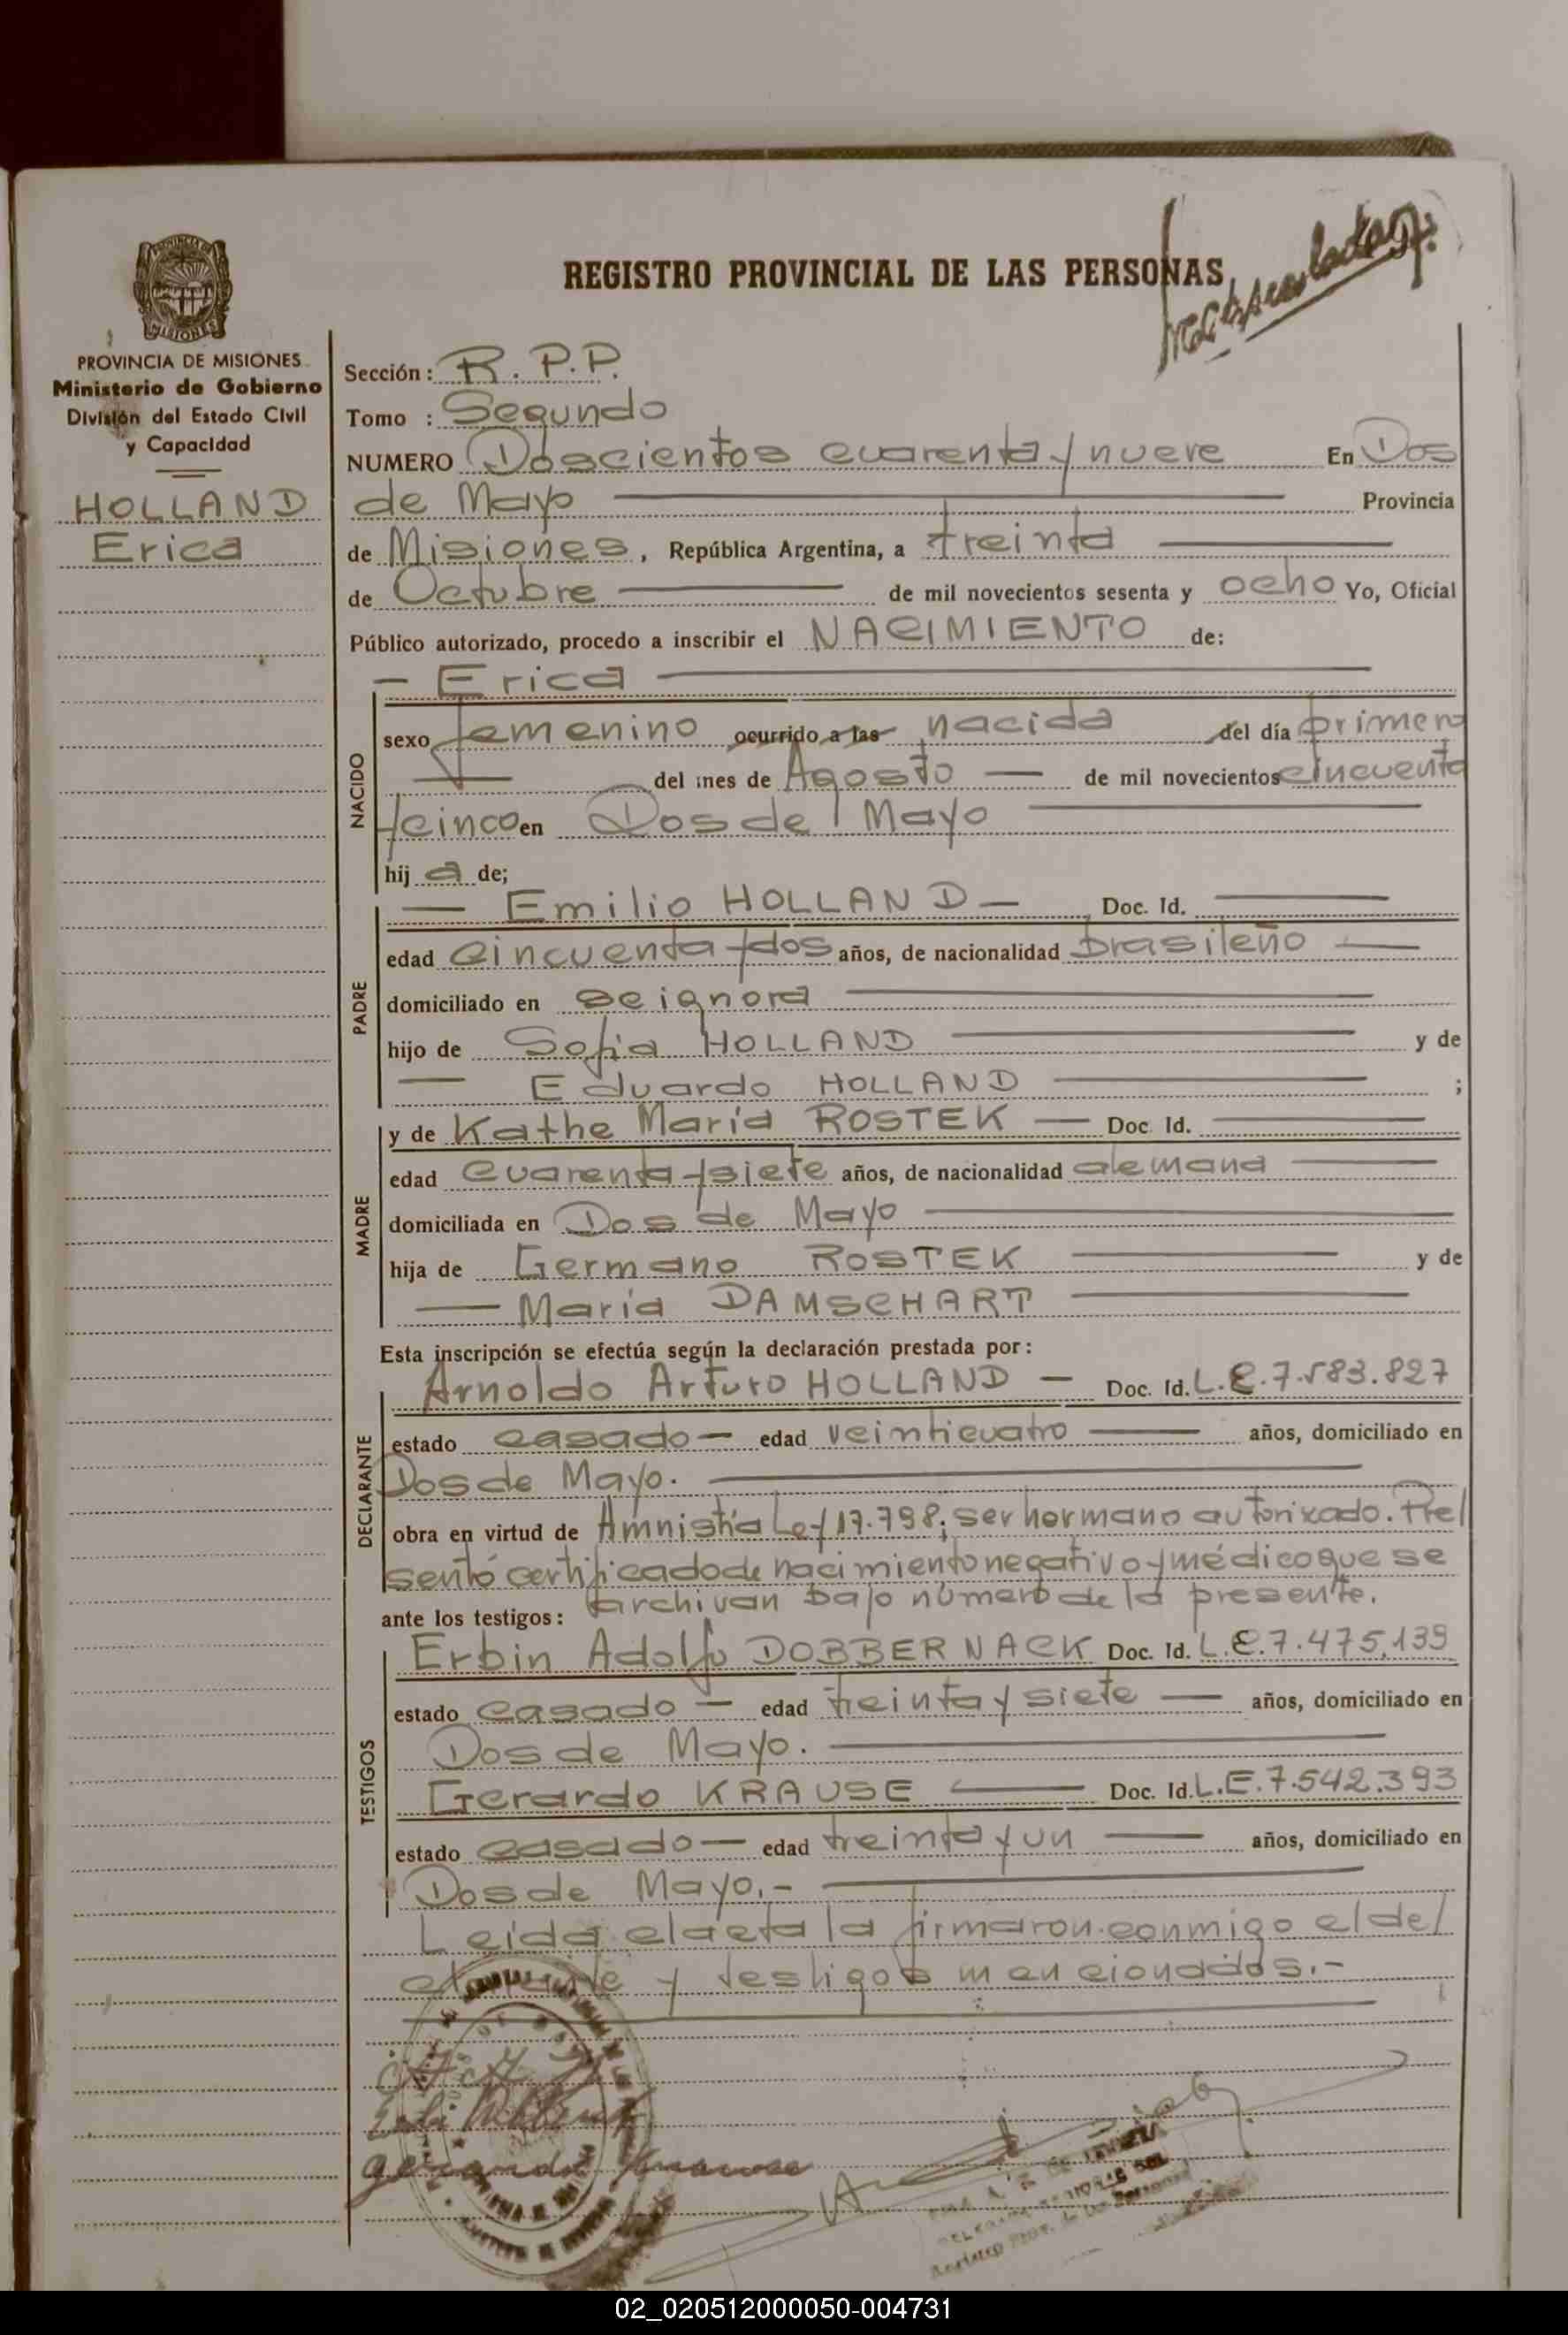 REGISTRO PROVINCIAL DE LAS PERSONAS
PROVINCIA DE MISIONES
Ministerio de Gobierno
División del Estado Civil
y Capacidad
HOLLAND
Erica
Sección: R. P. P.
Tomo : Segundo
NUMERO Doscientos cuarenta y nueve En Dos
de Mayo Provincia
de Misiones, República Argentina, a treinta
de Octubre de mil novecientos sesenta y ocho Yo, Oficial
Público autorizado, procedo a inscribir el NACIMIENTO de:
— Erica
NACIDO
sexo femenino ocurrido a las nacida del día primero
del mes de Agosto — de mil novecientos cincuenta
y cinco en Dos de Mayo
hij a de;
PADRE
— Emilio HOLLAND — Doc. Id.
edad cincuenta y dos años, de nacionalidad brasileño —
domiciliado en se ignora
hijo de Sofia HOLLAND y de
— Eduardo HOLLAND ;
MADRE
y de Kathe María ROSTEK — Doc. Id.
edad cuarenta y siete años, de nacionalidad alemana
domiciliada en Dos de Mayo
hija de Germano ROSTEK y de
— María DAMSCHART
Esta inscripción se efectúa según la declaración prestada por:
DECLARANTE
Arnoldo Arturo HOLLAND — Doc. Id. L.E.7.583.827
estado casado — edad veinticuatro años, domiciliado en
Dos de Mayo.
obra en virtud de Amnistía Ley 17.798; ser hermano autorizado. Pre/
sentó certificado de nacimiento negativo y médico que se
archivan bajo número de la presente.
ante los testigos:
TESTIGOS
Erbin Adolfo DOBBERNACK Doc. Id. L.E.7.475.139
estado casado — edad treinta y siete — años, domiciliado en
Dos de Mayo.
Gerardo KRAUSE Doc. Id. L.E.7.542.393
estado casado — edad treinta y un años, domiciliado en
Dos de Mayo.-
Leída el acta la firmaron conmigo el de/
clarante y testigos mencionados.-
02_020512000050-004731